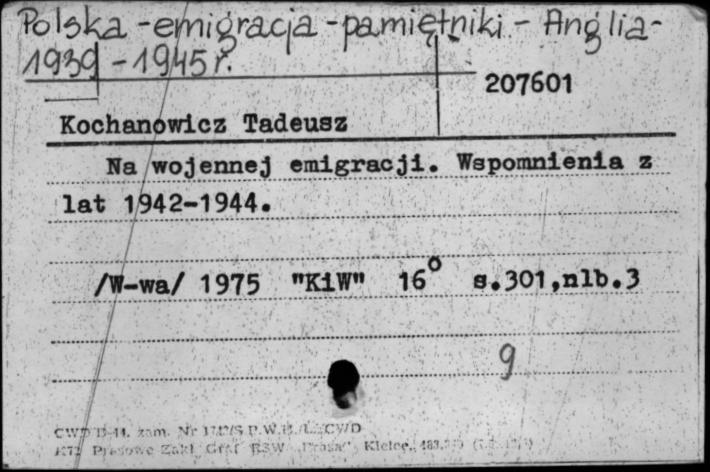 Polska - emigracja - pamiętniki - Anglia -
1939 - 1945 r.
207601
Kochanowicz Tadeusz
Na wojennej emigracji. Wspomnienia z
lat 1942-1944.
/W-wa/ 1975 "KiW" 16° s.301,nlb.3
9
CWD D-14. zam. Nr CWD
Prasowe Zakł. Graf. RSW "Prasa" Kielce.